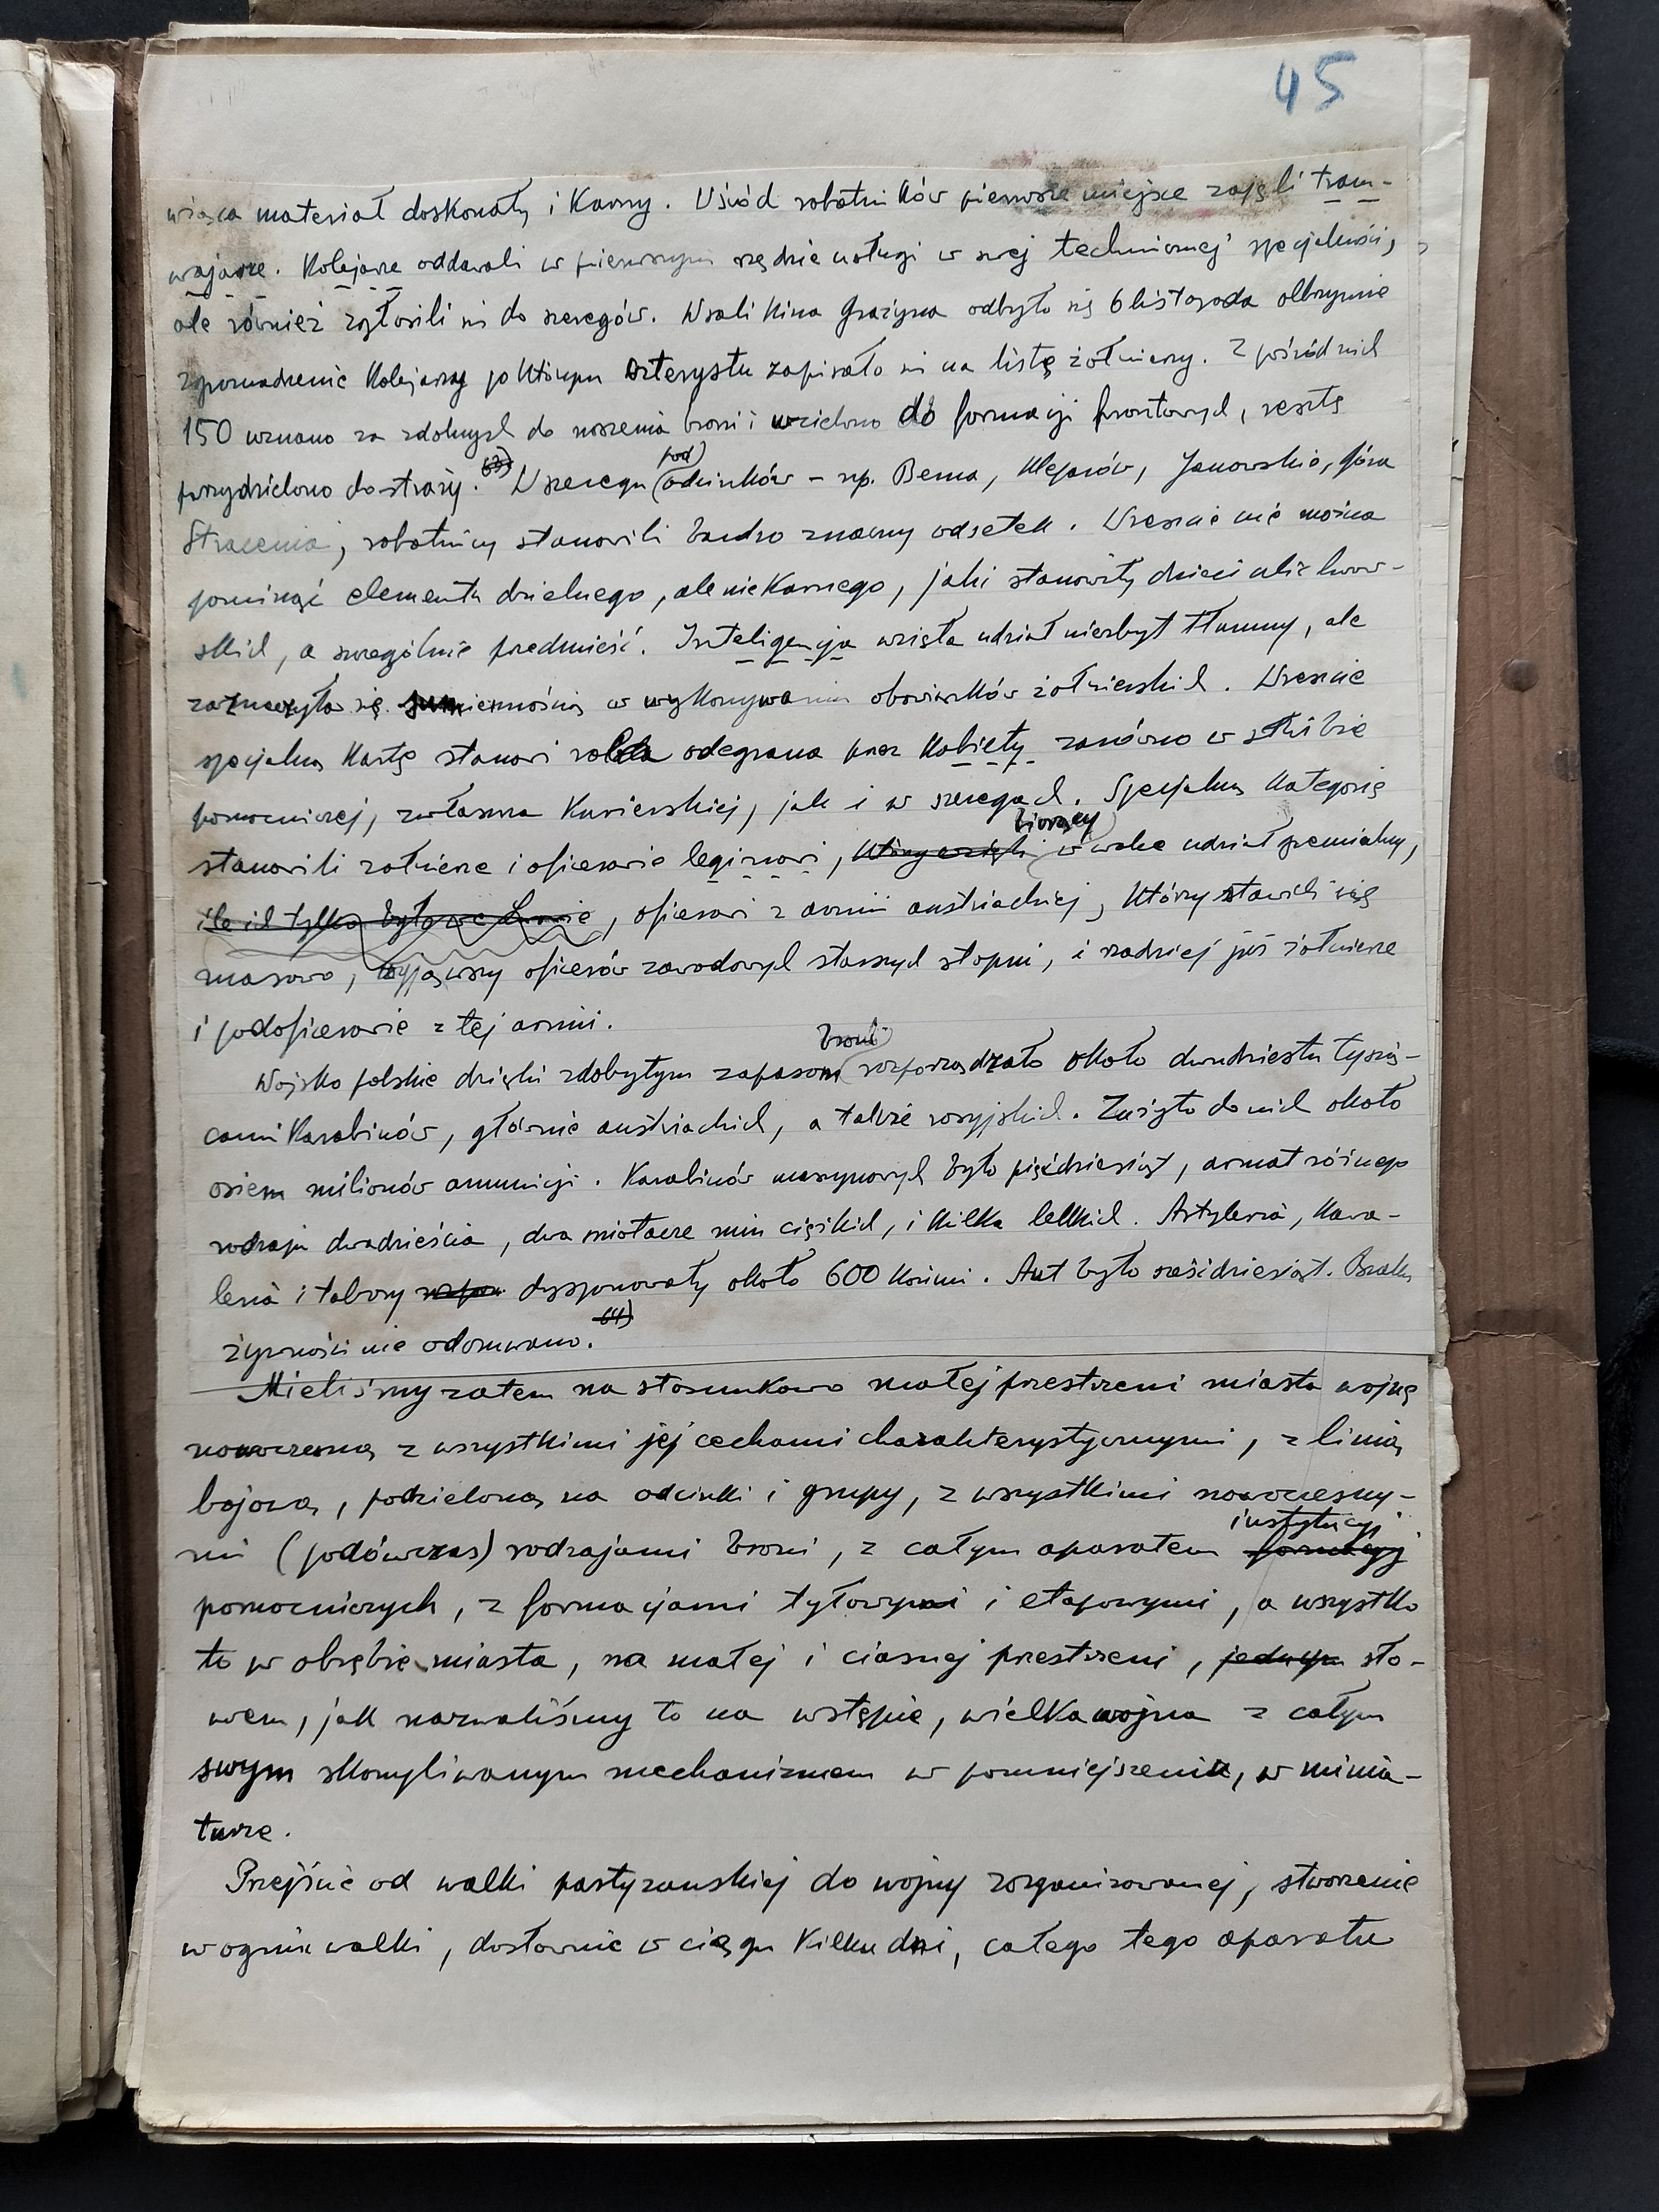 45
wiąca materiał doskonały i karny. Wśród robotników pierwsze miejsce zajęli tram-
wajarze. Kolejarze oddawali w pierwszym rzędzie usługi w swej technicznej specjalności,
ale również zgłosili się do szeregów. W sali kina Grażyna odbyło się 6 listopada olbrzymie
zgromadzenie kolejarzy po którym czterystu zapisało się na listę żołnierzy. Z pośród nich
150 uznano za zdolnych do noszenia broni i wcielono do formacji frontowych, resztę
przydzielono do straży. 63)
W szeregu (pod) odcinków – np. Bema, Kleparów, Janowskie, Góra
Stracenia, robotnicy stanowili bardzo znaczny odsetek. Wreszcie nie można
pominąć elementu dzielnego, ale niekarnego, jaki stanowiły dzieci ulic lwow-
skich, a szczególnie przedmieść. Inteligencja wzięła udział niezbyt tłumny, ale
zaznaczyła się sumiennością w wykonywaniu obowiązków żołnierskich. Wreszcie
specjalną kartę stanowi rola odegrana przez kobiety zarówno w służbie
pomocniczej, zwłaszcza kurierskiej, jak i w szeregach. Specjalną kategorię
stanowili żołnierze i oficerowie legionowi, którzy wzięli biorący w walce udział gremialny,
ile ich tylko było we Lwowie, oficerowi z armii austriackiej, którzy stawili się
masowo, wyjąwszy oficerów zawodowych starszych stopni, i rzadziej już żołnierze
i podoficerowie z tej armii.
Wojsko polskie dzięki zdobytym zapasom broni rozporządzało około dwudziestu tysią-
cami karabinów, głównie austriackich, a także rosyjskich. Zużyto do nich około
osiem milionów amunicji. Karabinów maszynowych było pięćdziesiąt, armat różnego
rodzaju dwadzieścia, dwa miotacze min ciężkich, i kilka lekkich. Artyleria, kawa-
leria i tabory dysponowały około 600 końmi. Aut było sześćdziesiąt. Braku
żywności nie odczuwano. 64)
Mieliśmy zatem na stosunkowo małej przestrzeni miasta wojnę
nowoczesną z wszystkimi jej cechami charakterystycznymi, z linią
bojową, podzieloną na odcinki i grupy, z wszystkimi nowoczesny-
mi (podówczas) rodzajami broni, z całym aparatem formacyj instytucyj
pomocniczych, z formacjami tyłowymi i etapowymi, a wszystko
to w obrębie miasta, na małej i ciasnej przestrzeni, jednym sło-
wem, jak nazwaliśmy to na wstępie, wielka wojna z całym
swym skomplikowanym mechanizmem w pomniejszeniu, w minia-
turze.
Przejście od walki partyzanckiej do wojny zorganizowanej, stworzenie
w ogniu walki, dosłownie w ciągu kilku dni, całego tego aparatu